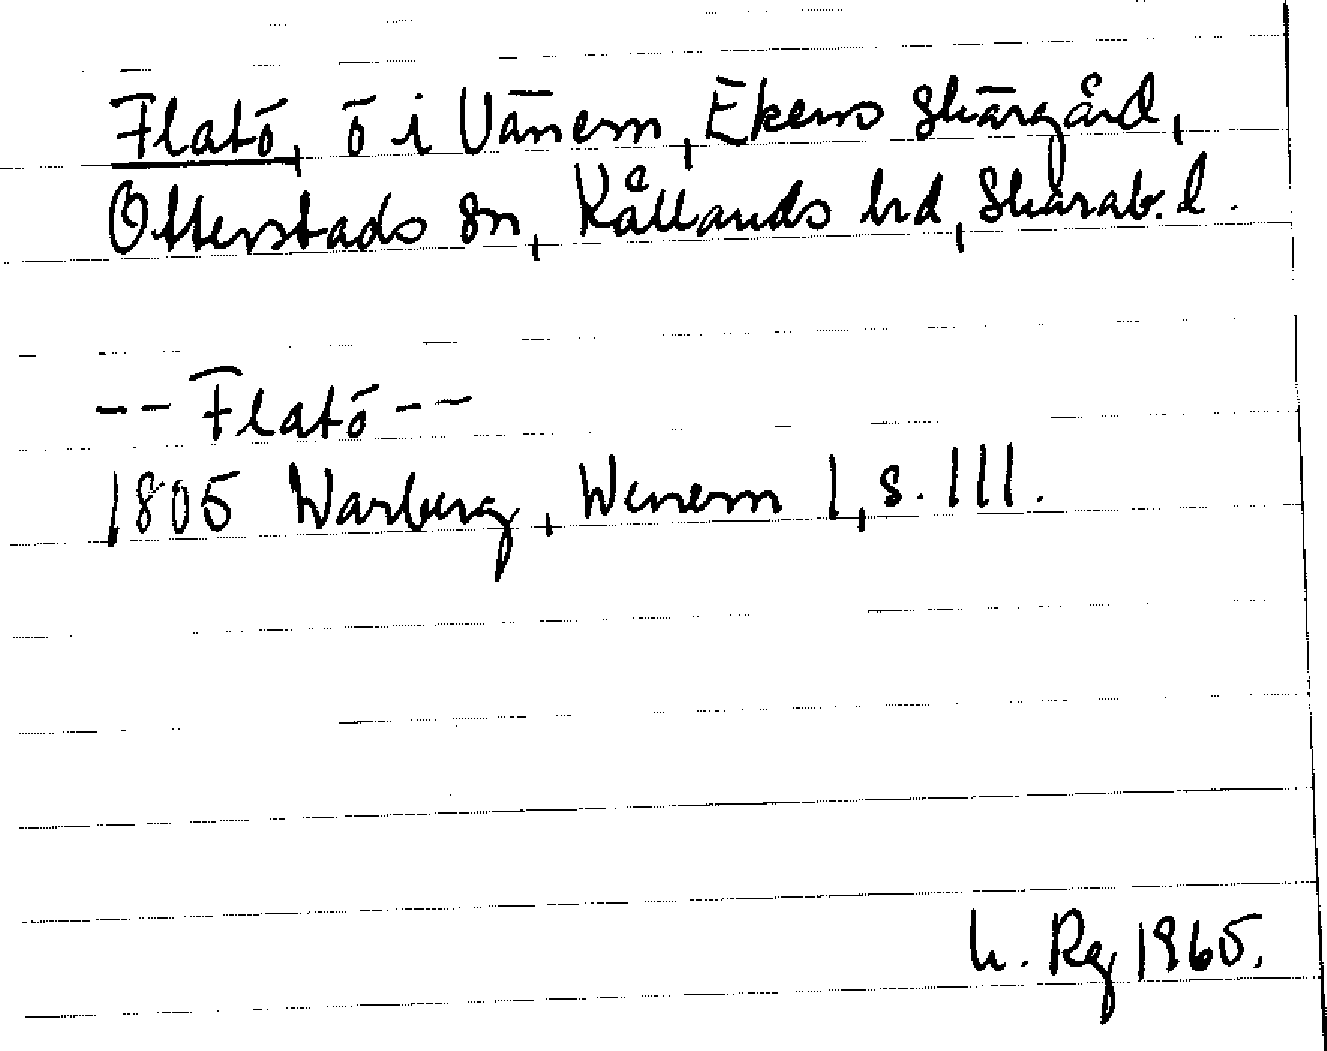 Flatö, ö i Vänern, Ekens skärgård,
Otterstads sn, Kållands hrd, Skarab. l.
-- Flatö --
1805 Warberg, Wenern I, s. 111.
h. Rg 1965.